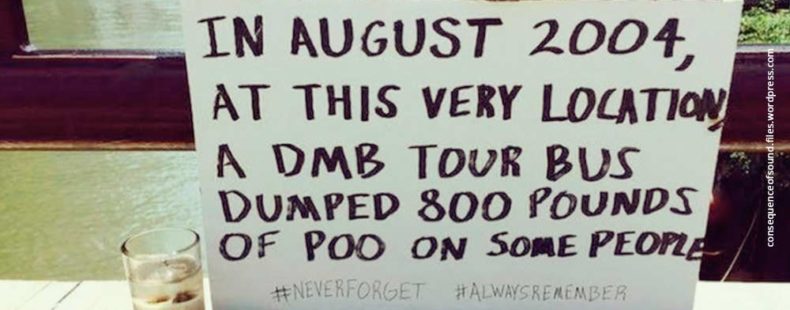 IN AUGUST 2004,
AT THIS VERY LOCATION,
A DMB TOUR BUS
DUMPED 800 POUNDS
OF POO ON SOME PEOPLE
#NEVERFORGET #ALWAYSREMEMBER
consequenceofsound.files.wordpress.com